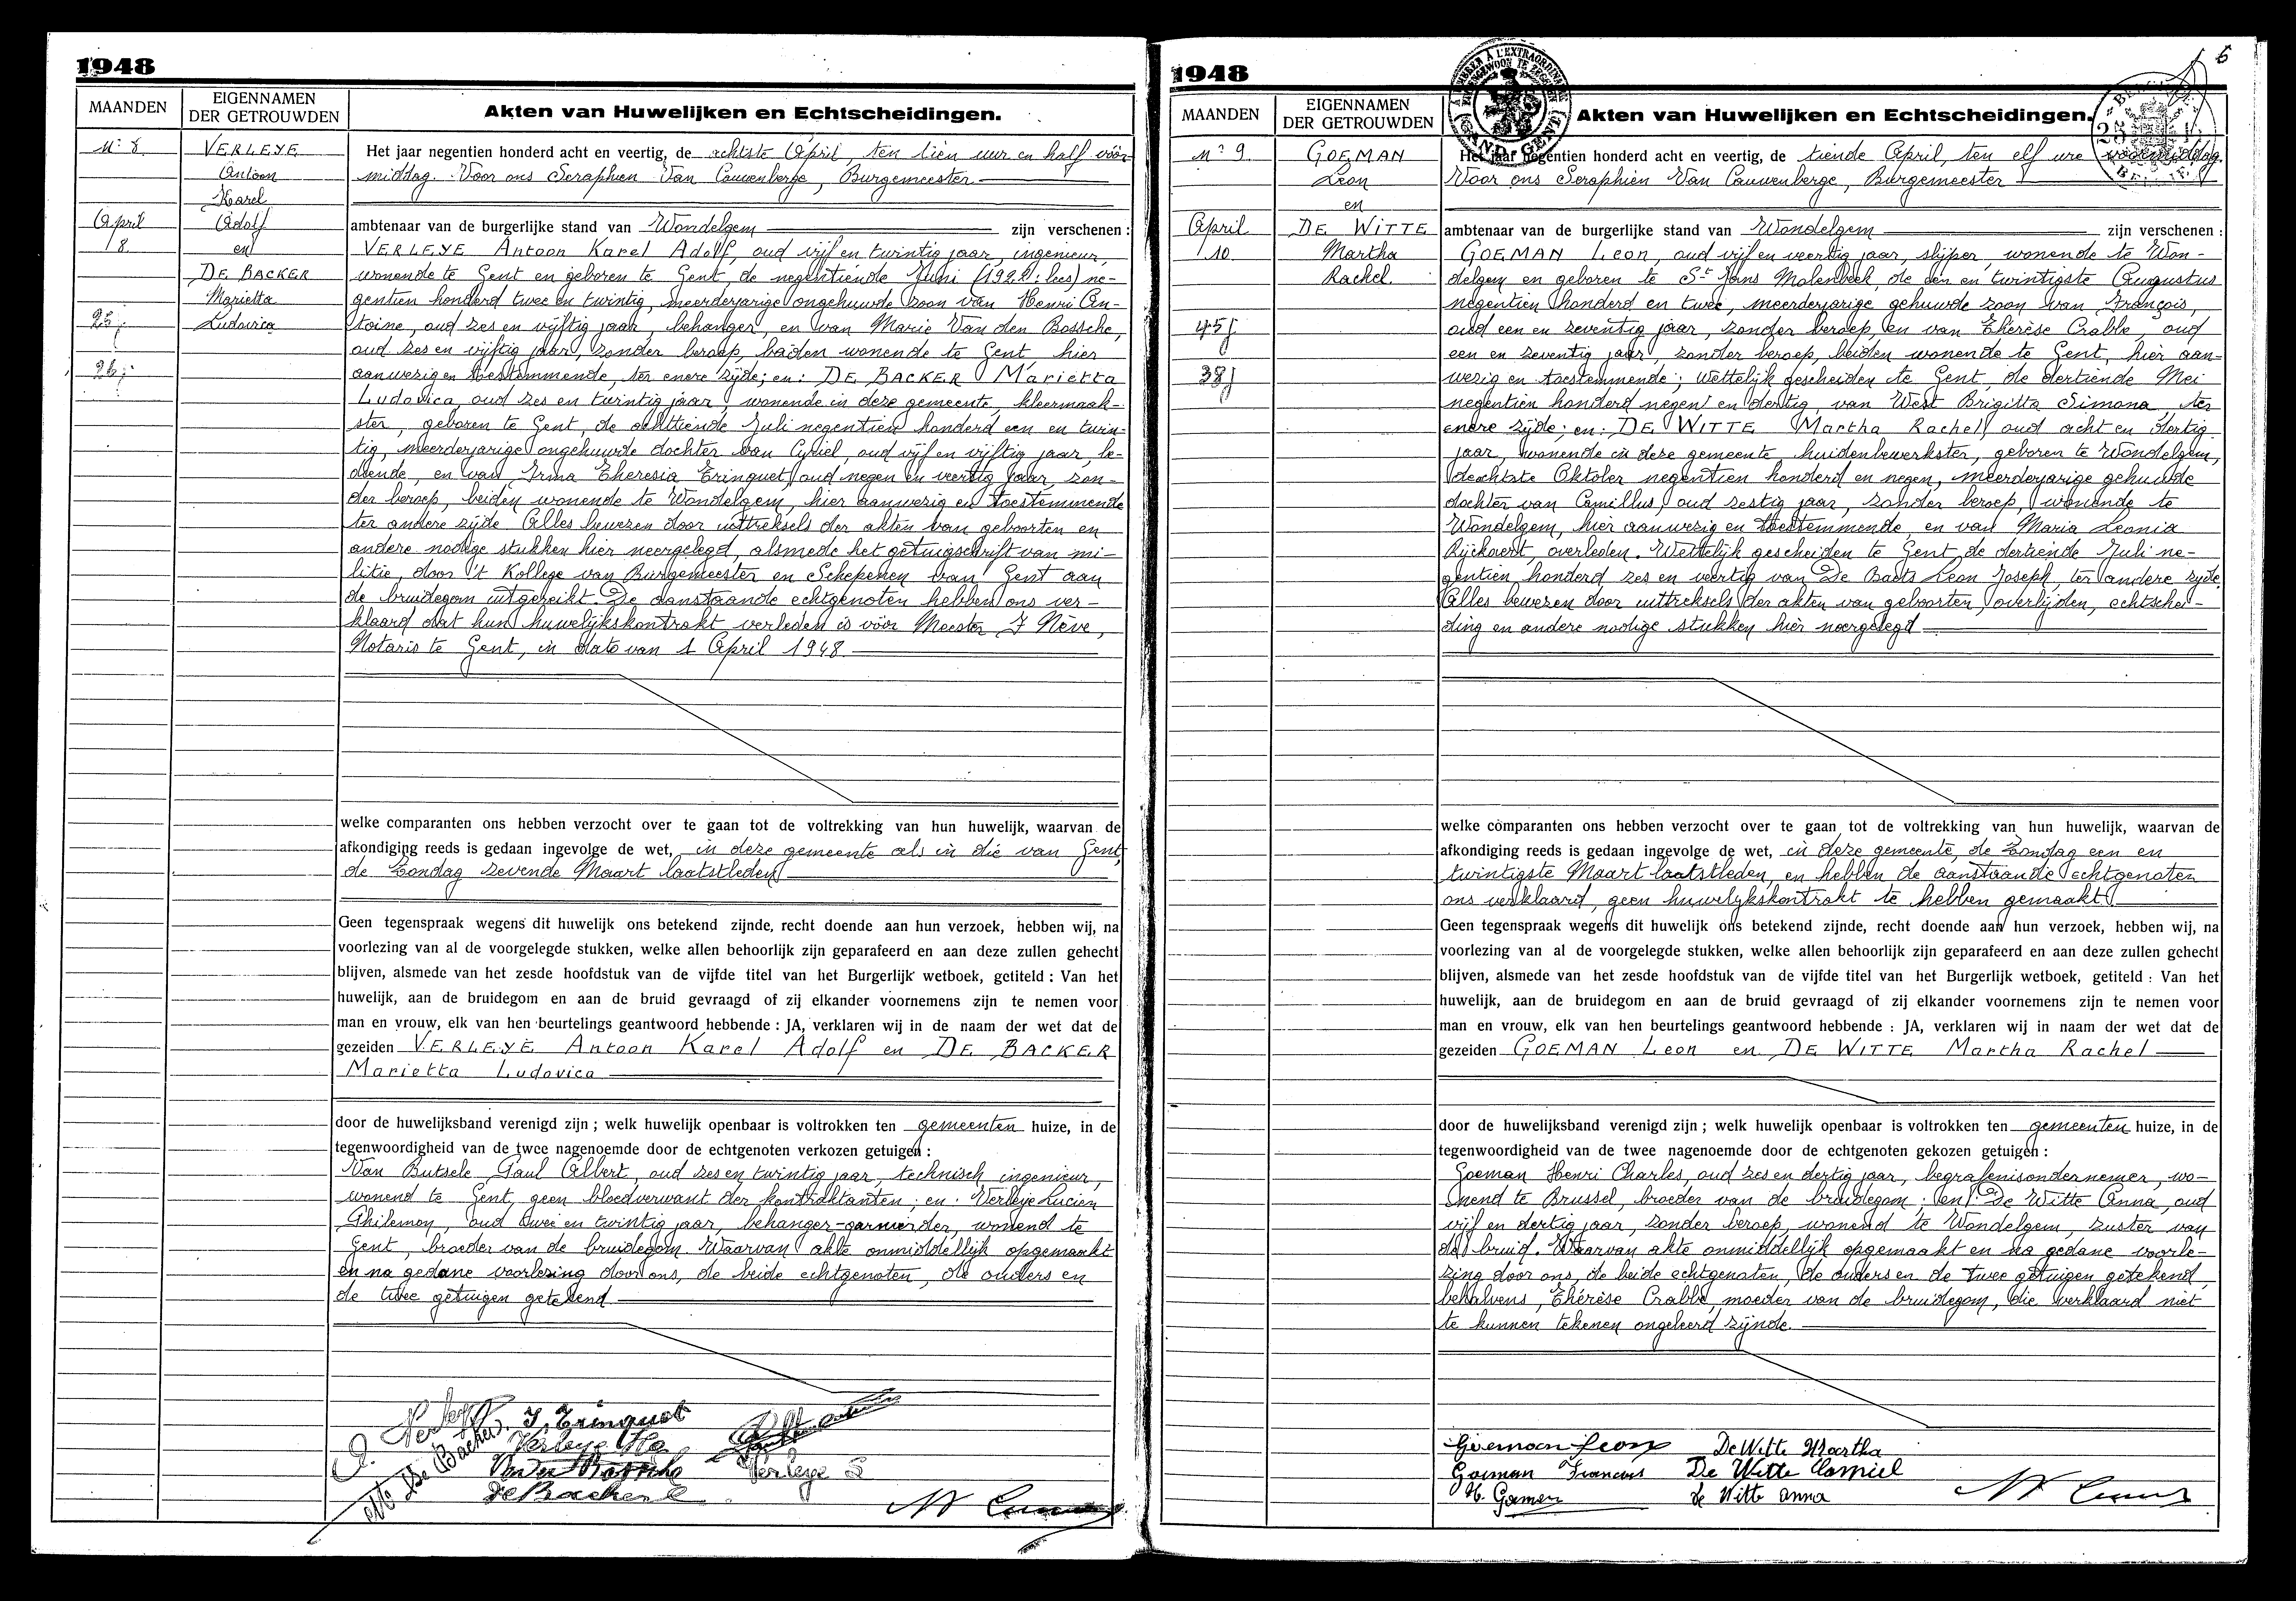 1948
MAANDEN
EIGENNAMEN
DER GETROUWDEN
Akten van Huwelijken en Echtscheidingen.
N° 8
VERLEYE
Antoon
Karel
Adolf
en
DE BACKER
Marietta
Ludovica
April
8
25j
26j
Het jaar negentien honderd acht en veertig, de achtste April, ten tien uur en half vóór
middag. Voor ons Seraphien Van Cauwenberge, Burgemeester
ambtenaar van de burgerlijke stand van Wondelgem zijn verschenen :
VERLEYE Antoon Karel Adolf, oud vijf en twintig jaar, ingenieur,
wonende te Gent en geboren te Gent, de negentiende Juni (1922: lees) ne-
gentien honderd twee en twintig, meerderjarige ongehuwde zoon van Henri An-
toine, oud zes en vijftig jaar, behanger, en van Marie Van den Bossche,
oud zes en vijftig jaar, zonder beroep, beiden wonende te Gent, hier
aanwezig en toestemmende, ter enere zijde; en: DE BACKER Marietta
Ludovica, oud zes en twintig jaar, wonende in deze gemeente, kleermaak-
ster, geboren te Gent, de achttiende Juli negentien honderd een en twin-
tig, meerderjarige ongehuwde dochter van Cyriel, oud vijf en vijftig jaar, be-
diende, en van Irma Theresia Tringuet, oud negen en veertig jaar, zon-
der beroep, beiden wonende te Wondelgem, hier aanwezig en toestemmende
ter andere zijde. Alles bewezen door uittreksels der akten van geboorten en
andere nodige stukken hier neergelegd, alsmede het getuigschrift van mi-
litie, door 't Kollege van Burgemeester en Schepenen van Gent aan
de bruidegom uitgereikt. De aanstaande echtgenoten hebben ons ver-
klaard dat hun huwelijkskontrakt verleden is vóór Meester J Nève,
Notaris te Gent, in dato van 1 April 1948
welke comparanten ons hebben verzocht over te gaan tot de voltrekking van hun huwelijk, waarvan de
afkondiging reeds is gedaan ingevolge de wet, in deze gemeente als in die van Gent,
de Zondag zevende Maart laatstleden
Geen tegenspraak wegens dit huwelijk ons betekend zijnde, recht doende aan hun verzoek, hebben wij, na
voorlezing van al de voorgelegde stukken, welke allen behoorlijk zijn geparafeerd en aan deze zullen gehecht
blijven, alsmede van het zesde hoofdstuk van de vijfde titel van het Burgerlijk wetboek, getiteld : Van het
huwelijk, aan de bruidegom en aan de bruid gevraagd of zij elkander voornemens zijn te nemen voor
man en vrouw, elk van hen beurtelings geantwoord hebbende : JA, verklaren wij in de naam der wet dat de
gezeiden VERLEYE Antoon Karel Adolf en DE BACKER
Marietta Ludovica
door de huwelijksband verenigd zijn ; welk huwelijk openbaar is voltrokken ten gemeenten huize, in de
tegenwoordigheid van de twee nagenoemde door de echtgenoten verkozen getuigen :
Van Butsele Paul Albert, oud zes en twintig jaar, technisch ingenieur,
wonend te Gent, geen bloedverwant der kontraktanten; en: Verleye Lucien
Philemon, oud twee en twintig jaar, behanger-garnierder, wonend te
Gent, broeder van de bruidegom. Waarvan akte onmiddellijk opgemaakt
en na gedane voorlezing door ons, de beide echtgenoten, de ouders en
de twee getuigen getekend
A. Verleye
M. De Backer
I. Tringuet
Verleye Ha
Van den Bossche
De Backer C
Verleye L
1948
5
MAANDEN
EIGENNAMEN
DER GETROUWDEN
Akten van Huwelijken en Echtscheidingen.
N° 9
GOEMAN
Leon
en
DE WITTE
Martha
Rachel.
April
10
45j
38j
Het jaar negentien honderd acht en veertig, de tiende April, ten elf ure voormiddag.
Voor ons Seraphien Van Cauwenberge, Burgemeester
ambtenaar van de burgerlijke stand van Wondelgem zijn verschenen :
GOEMAN Leon, oud vijf en veertig jaar, slijper, wonende te Won-
delgem en geboren te St Jans Molenbeek, de een en twintigste Augustus
negentien honderd en twee, meerderjarige gehuwde zoon van François,
oud een en zeventig jaar, zonder beroep, en van Thérèse Crabbe, oud
een en zeventig jaar, zonder beroep, beiden wonende te Gent, hier aan-
wezig en toestemmende; wettelijk gescheiden te Gent, de dertiende Mei
negentien honderd negen en dertig, van West Brigitta Simona, ter
enere zijde; en: DE WITTE Martha Rachel, oud acht en dertig
jaar, wonende in deze gemeente, huidenbewerkster, geboren te Wondelgem,
de achtste Oktober negentien honderd en negen, meerderjarige gehuwde
dochter van Camillus, oud zestig jaar, zonder beroep, wonende te
Wondelgem, hier aanwezig en toestemmende, en van Maria Leonia
Rijckaert, overleden. Wettelijk gescheiden te Gent, de dertiende Juli ne-
gentien honderd zes en veertig van De Baets Leon Joseph, ter andere zijde
Alles bewezen door uittreksels der akten van geboorten, overlijden, echtschei-
ding en andere nodige stukken hier neergelegd
welke comparanten ons hebben verzocht over te gaan tot de voltrekking van hun huwelijk, waarvan de
afkondiging reeds is gedaan ingevolge de wet, in deze gemeente, de Zondag een en
twintigste Maart laatstleden, en hebben de aanstaande echtgenoten
ons verklaard, geen huwelijkskontrakt te hebben gemaakt
Geen tegenspraak wegens dit huwelijk ons betekend zijnde, recht doende aan hun verzoek, hebben wij, na
voorlezing van al de voorgelegde stukken, welke allen behoorlijk zijn geparafeerd en aan deze zullen gehecht
blijven, alsmede van het zesde hoofdstuk van de vijfde titel van het Burgerlijk wetboek, getiteld : Van het
huwelijk, aan de bruidegom en aan de bruid gevraagd of zij elkander voornemens zijn te nemen voor
man en vrouw, elk van hen beurtelings geantwoord hebbende : JA, verklaren wij in naam der wet dat de
gezeiden GOEMAN Leon en DE WITTE Martha Rachel
door de huwelijksband verenigd zijn ; welk huwelijk openbaar is voltrokken ten gemeenten huize, in de
tegenwoordigheid van de twee nagenoemde door de echtgenoten gekozen getuigen :
Goeman Henri Charles, oud zes en dertig jaar, begrafenisondernemer, wo-
nend te Brussel, broeder van de bruidegom; en: De Witte Anna, oud
vijf en dertig jaar, zonder beroep, wonend te Wondelgem, zuster van
de bruid. Waarvan akte onmiddellijk opgemaakt en na gedane voorle-
zing door ons, de beide echtgenoten, de ouders en de twee getuigen getekend,
behalvens, Thérèse Crabbe, moeder van de bruidegom, die verklaard niet
te kunnen tekenen ongeleerd zijnde.
Goeman Leon De Witte Martha
Goeman Francois De Witte Camiel
H. Goeman de Witte anna